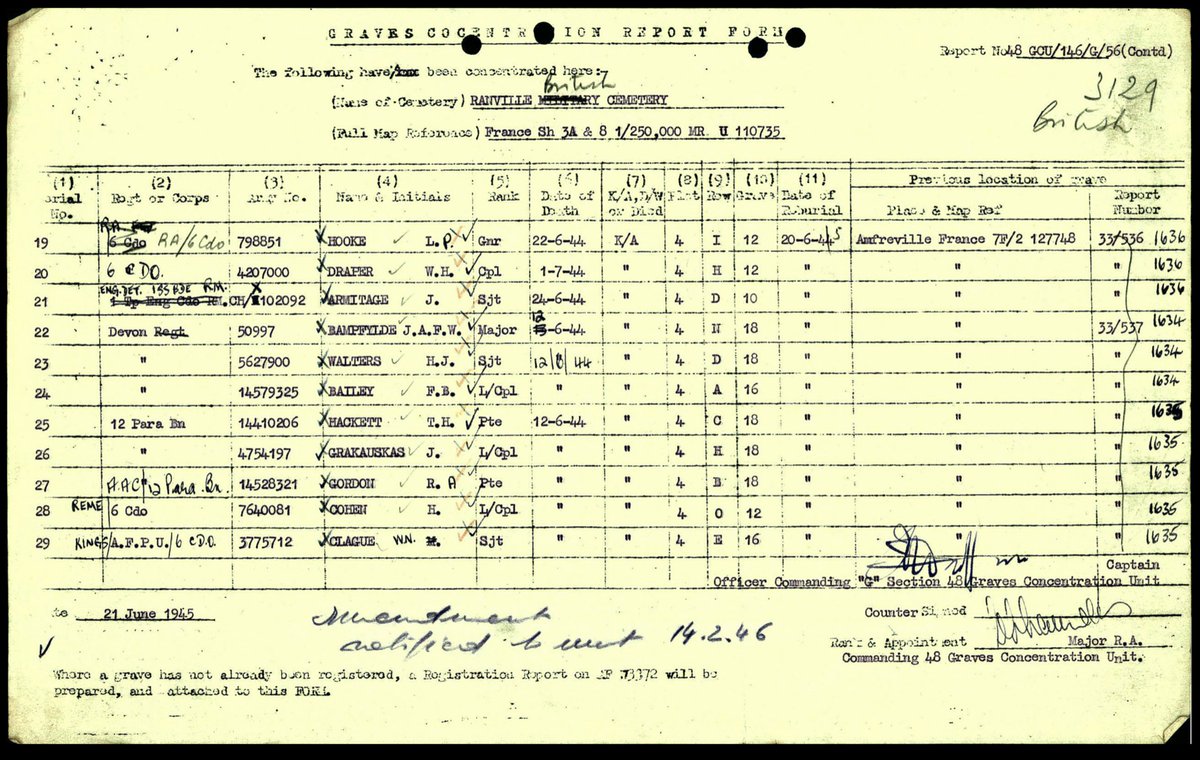 GRAVES COCENTR ION REPORT FORM
Report No 48 GCU/146/G/56(Contd)
The following have been concentrated here:
British
3129
(Name of Cemetery) RANVILLE MILITARY CEMETERY
British
(Full Map Reference) France Sh 3A & 8 1/250,000 MR U 110735
(1) (2) (3) (4) (5) (6) (7) (8) (9) (10) (11) Previous location of grave
erial No. Regt or Corps Army No. Name & Initials Rank Date of Death K/A, D/W or Died Plot Row Grave Date of Reburial Place & Map Ref Report Number
RA
19 6 Cdo RA/6 Cdo 798851 HOOKE L.P. Gnr 22-6-44 K/A 4 I 12 20-6-45 Amfreville France 7F/2 127748 33/536 1636
20 6 CDO. 4207000 DRAPER W.H. Cpl 1-7-44 " 4 H 12 " " 1636
ENG.DET. 1SS BDE RM. X
21 1 Tp Eng Cdo RM. CH/X102092 ARMITAGE J. Sjt 24-6-44 " 4 D 10 " " 1636
12
22 Devon Regt 50997 BAMPFYLDE J.A.F.W. Major -6-44 " 4 N 18 " 33/537 1634
23 " 5627900 WALTERS H.J. Sjt 12/6/44 " 4 D 18 " " 1634
24 " 14579325 BAILEY F.B. L/Cpl " " 4 A 16 " " 1634
25 12 Para Bn 14410206 HACKETT T.H. Pte 12-6-44 " 4 C 18 " " 1635
26 " 4754197 GRAKAUSKAS J. L/Cpl " " 4 H 18 " " 1635
27 AAC/12 Para Bn. 14528321 GORDON R. A Pte " " 4 B 18 " " 1635
28 REME 6 Cdo 7640081 COHEN H. L/Cpl " " 4 O 12 " " 1635
29 KINGS/A.F.P.U./6 CDO. 3775712 CLAGUE W.N. Sjt " " 4 E 16 " " 1635
Captain
Officer Commanding "G" Section 48 Graves Concentration Unit
te 21 June 1945
Counter Signed
Amendment
notified to unit 14.2.46
Rank & Appointment Major R.A.
Commanding 48 Graves Concentration Unit.
Where a grave has not already been registered, a Registration Report on will be
prepared, and attached to this FORM.